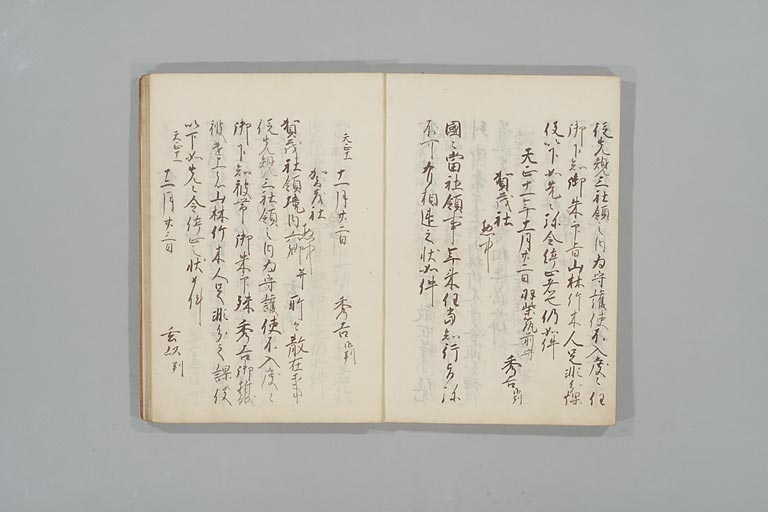 従先規三社領之内為守護使不入度々任
御下知御朱印旨山林竹木人足非分課
役以下如先々弥令停止者也仍如件
天正十一年十一月廿二日 羽柴筑前守
秀吉御判
賀茂社
惣中
国々当社領事年来任当知行旨弥
不可有相違之状如件
天正十一
十一月廿二日 秀吉御判
賀茂社
惣中
賀茂社領境内六郷并所々散在事
従先規三社領之内為守護使不入度々
御下知被帯御朱印殊秀吉御判
被遣上者山林竹木人足非分之課役
以下如先々令停止之状如件
天正十一
十一月廿三日 玄以判